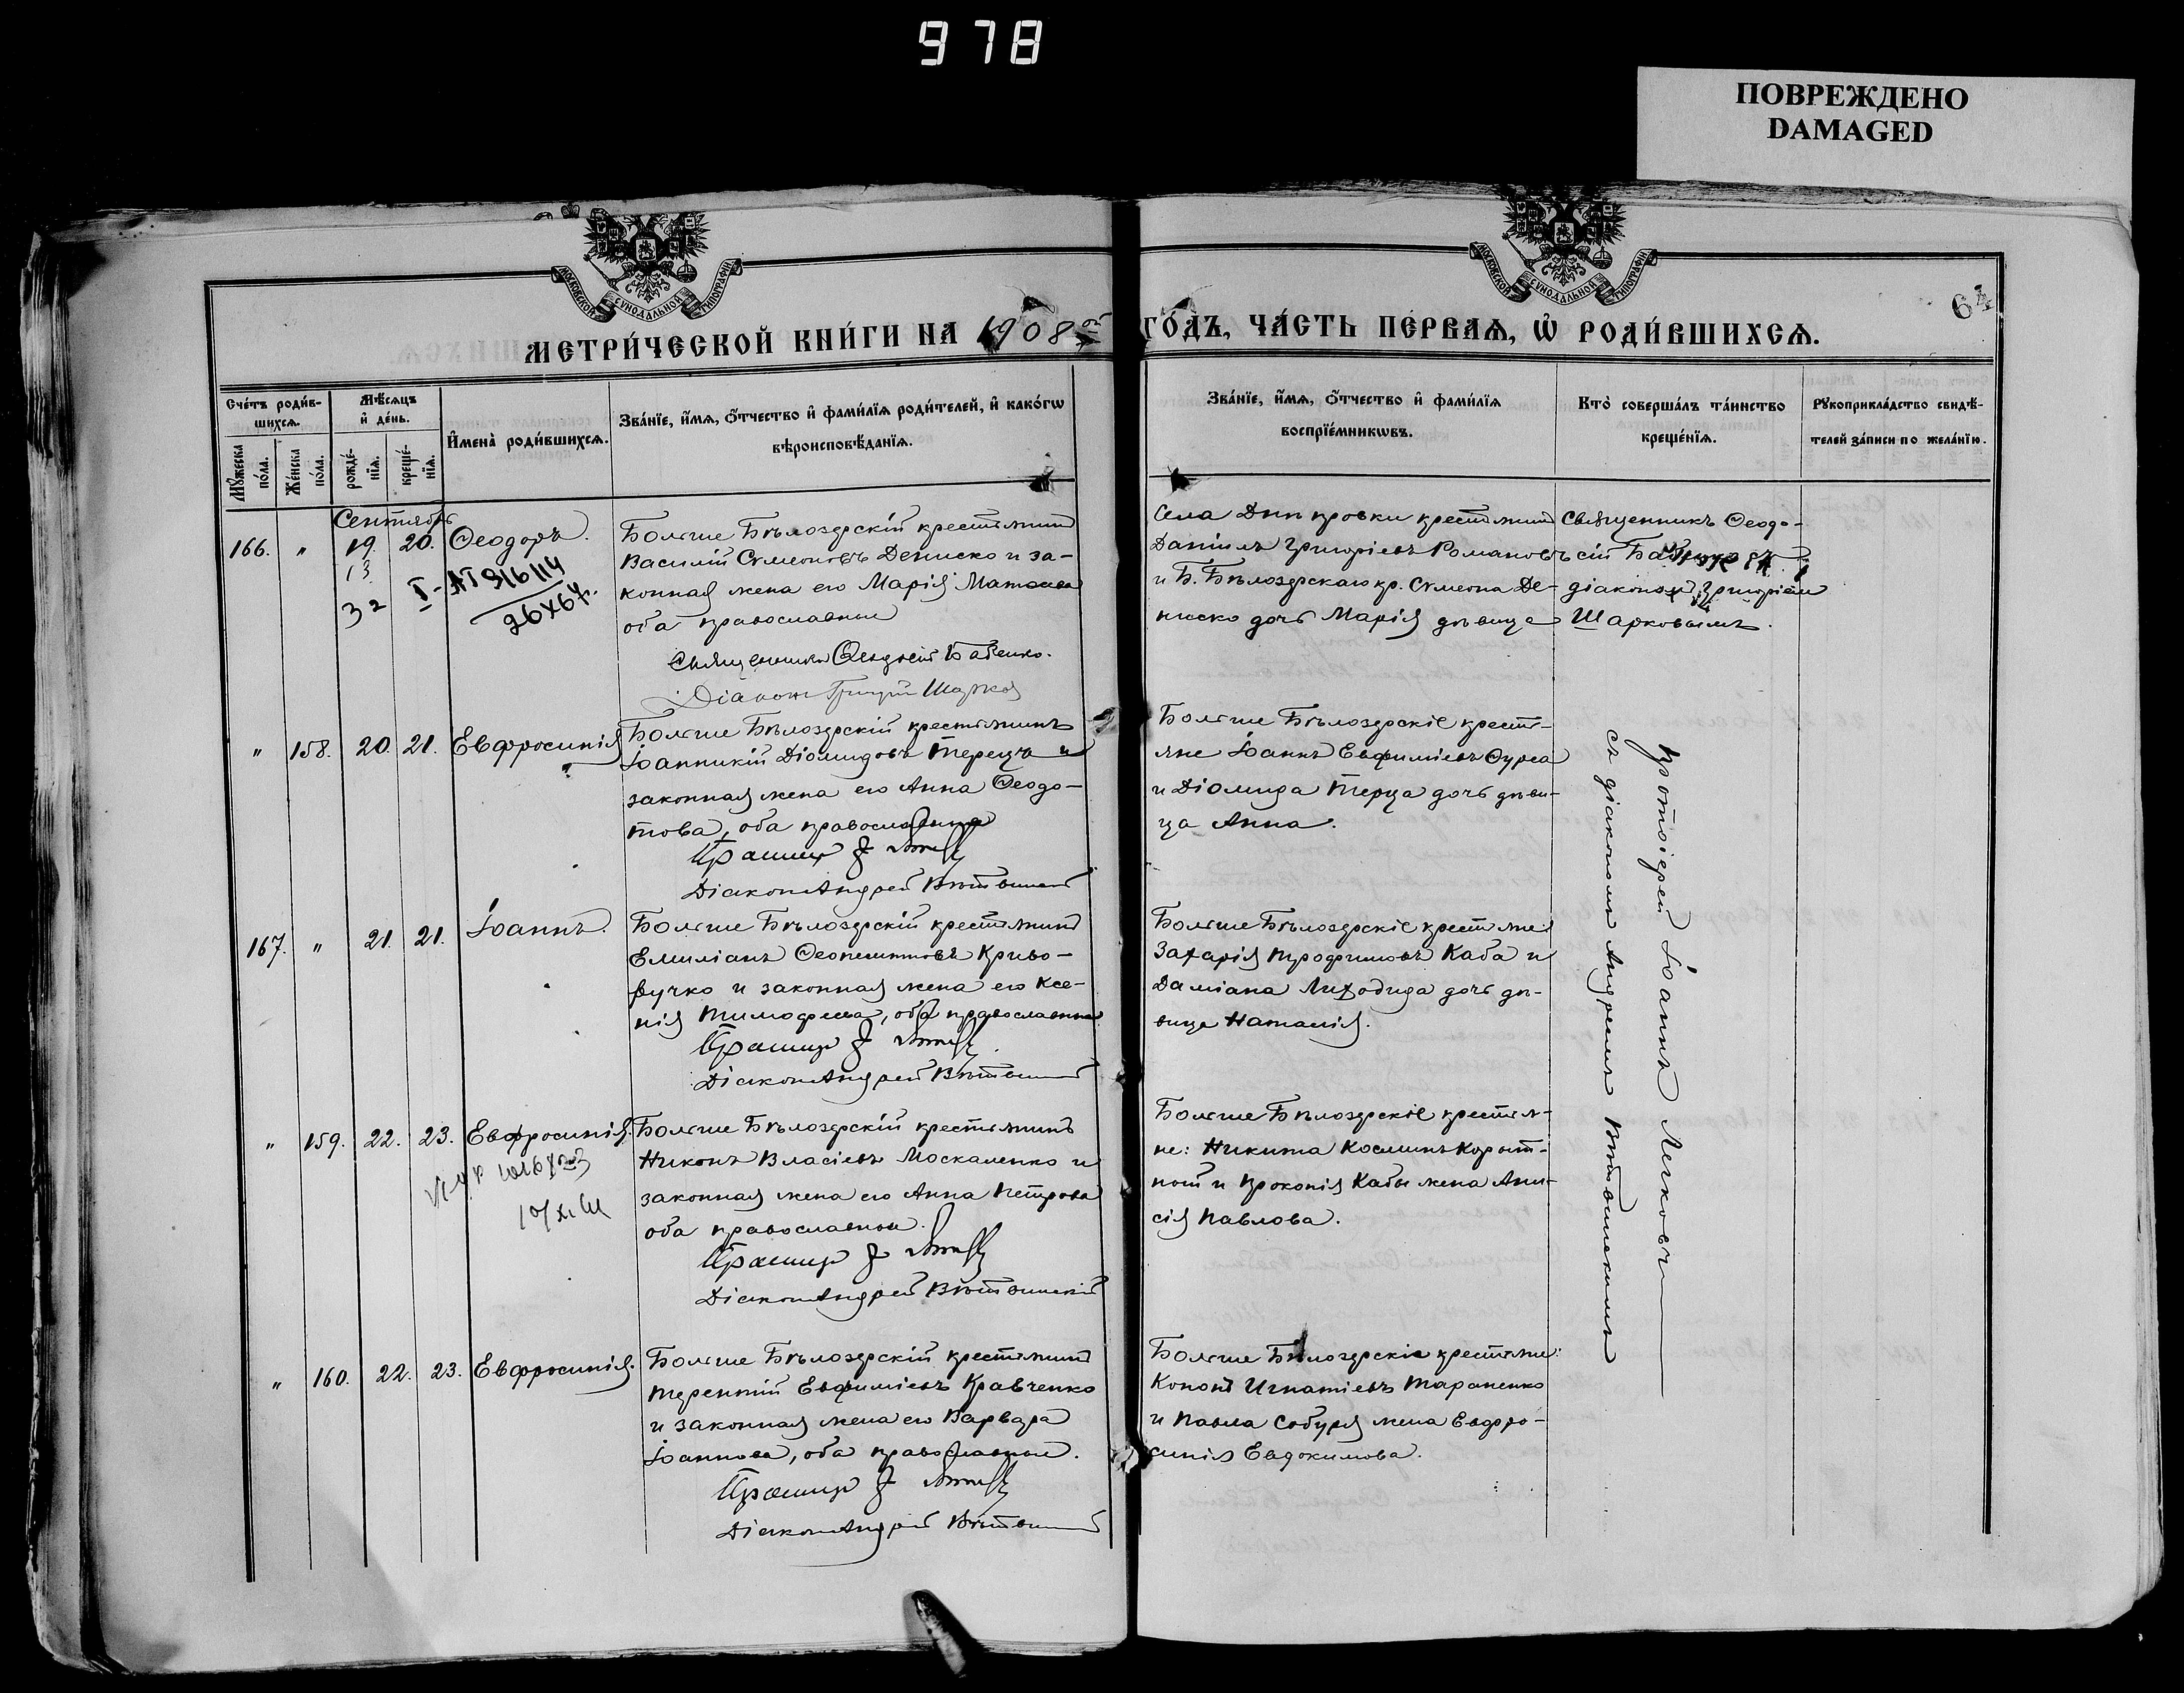 978
ПОВРЕЖДЕНО
DAMAGED
МОСКОВСКОЙ СѴНОДАЛЬНОЙ ТИПОГРАФІИ
МОСКОВСКОЙ СѴНОДАЛЬНОЙ ТИПОГРАФІИ
64
МЕТРИ́ЧЕСКОЙ КНИ́ГИ НА 1908 ой ГО́ДЪ, ЧА́СТЬ ПЕ́РВАѦ, Ѽ РОДИ́ВШИХСѦ.
Сче́тъ роди́в-
шихсѧ.
Мѣ́сѧцъ
и҆ де́нь.
И҆мена̀ роди́вшихсѧ.
Зва́нїе, и҆́мѧ, ѻ҆́тчество и҆ фами́лїѧ роди́телей, и҆ како́гѡ
вѣроисповѣ́данїѧ.
Мꙋ́жеска
по́ла.
Же́нска
по́ла.
рожде́-
нїѧ.
креще́-
нїѧ.
Зва́нїе, и҆́мѧ, ѻ҆́тчество и҆ фами́лїѧ
воспрїе́мникѡвъ.
Кто̀ соверша́лъ та́инство
креще́нїѧ.
Рꙋкоприкла́дство свидѣ́-
телей за́писи по жела́нїю.
Сентябрь
166. " 19. 20. Ѳеодоръ.
13
32
I-АП 316114
26 X 67 г.
Больше Бѣлозерскій крестьянинъ
Василій Сѵмеоновъ Дениско и за-
конная жена его Марія Матѳеева
оба православные
Священникъ Ѳеодосій Бабенко.
Діаконъ Григорій Шарковъ
Села Днѣпровки крестьянинъ
Даніилъ Григоріевъ Романовъ
и Б. Бѣлозерскаго кр. Сѵмеона Де-
ниско дочь Марія дѣвица
Священникъ Ѳеодо-
сій Бабенко съ
діакономъ Григоріемъ
Шарковымъ.
" 158. 20. 21. Евфросинія
Больше Бѣлозерскій крестьянинъ
Іоанникій Діомидовъ Терецъ и
законная жена его Анна Ѳеодо-
това, оба православные
Діаконъ Андрей Вѣтвинскій
Больше Бѣлозерскіе кресть-
яне Іоаннъ Евфиміевъ Сурса
и Діомида Терца дочь дѣви-
ца Анна.
Протоіерей Іоаннъ Лечковъ
съ діакономъ Андреемъ Вѣтвинскимъ
167. " 21. 21. Іоаннъ.
Больше Бѣлозерскій крестьянинъ
Емиліанъ Ѳеопемптовъ Криво-
ручко и законная жена его Ксе-
нія Тимофеева, оба православные
Діаконъ Андрей Вѣтвинскій
Больше Бѣлозерскіе крестьяне
Захарія Трофимовъ Каба и
Даміана Лиходида дочь дѣ-
вица Наталія.
" 159. 22. 23. Евфросинія.
Больше Бѣлозерскій крестьянинъ
Никонъ Власіевъ Москаленко и
законная жена его Анна Петрова
оба православные.
Діаконъ Андрей Вѣтвинскій
Больше Бѣлозерскіе крестья-
не: Никита Космінъ Корыт-
ной и Прокопія Кабы жена Ани-
сія Павлова.
" 160. 22. 23. Евфросинія.
Больше Бѣлозерскій крестьянинъ
Терентій Евфиміевъ Кравченко
и законная жена его Варвара
Іоаннова, оба православные.
Діаконъ Андрей Вѣтвинскій
Больше Бѣлозерскіе крестьяне:
Кононъ Игнатіевъ Тараненко
и Павла Собуря жена Евфро-
синія Евдокимова.